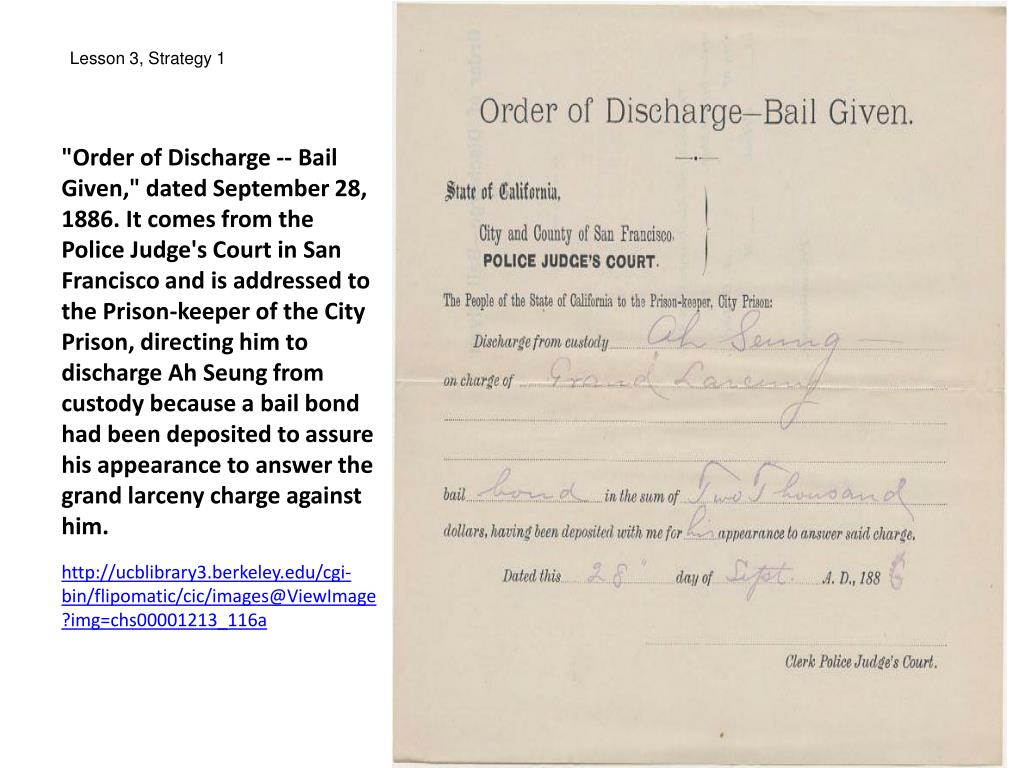 Lesson 3, Strategy 1
"Order of Discharge -- Bail
Given," dated September 28,
1886. It comes from the
Police Judge's Court in San
Francisco and is addressed to
the Prison-keeper of the City
Prison, directing him to
discharge Ah Seung from
custody because a bail bond
had been deposited to assure
his appearance to answer the
grand larceny charge against
him.
http://ucblibrary3.berkeley.edu/cgi-
bin/flipomatic/cic/images@ViewImage
?img=chs00001213_116a
Order of Discharge—Bail Given.
State of California,
City and County of San Francisco.
POLICE JUDGE'S COURT.
The People of the State of California to the Prison-keeper, City Prison:
Discharge from custody Ah Seung —
on charge of Grand Larceny
bail bond in the sum of Two Thousand
dollars, having been deposited with me for his appearance to answer said charge.
Dated this 28" day of Sept. A. D., 1886
Clerk Police Judge's Court.